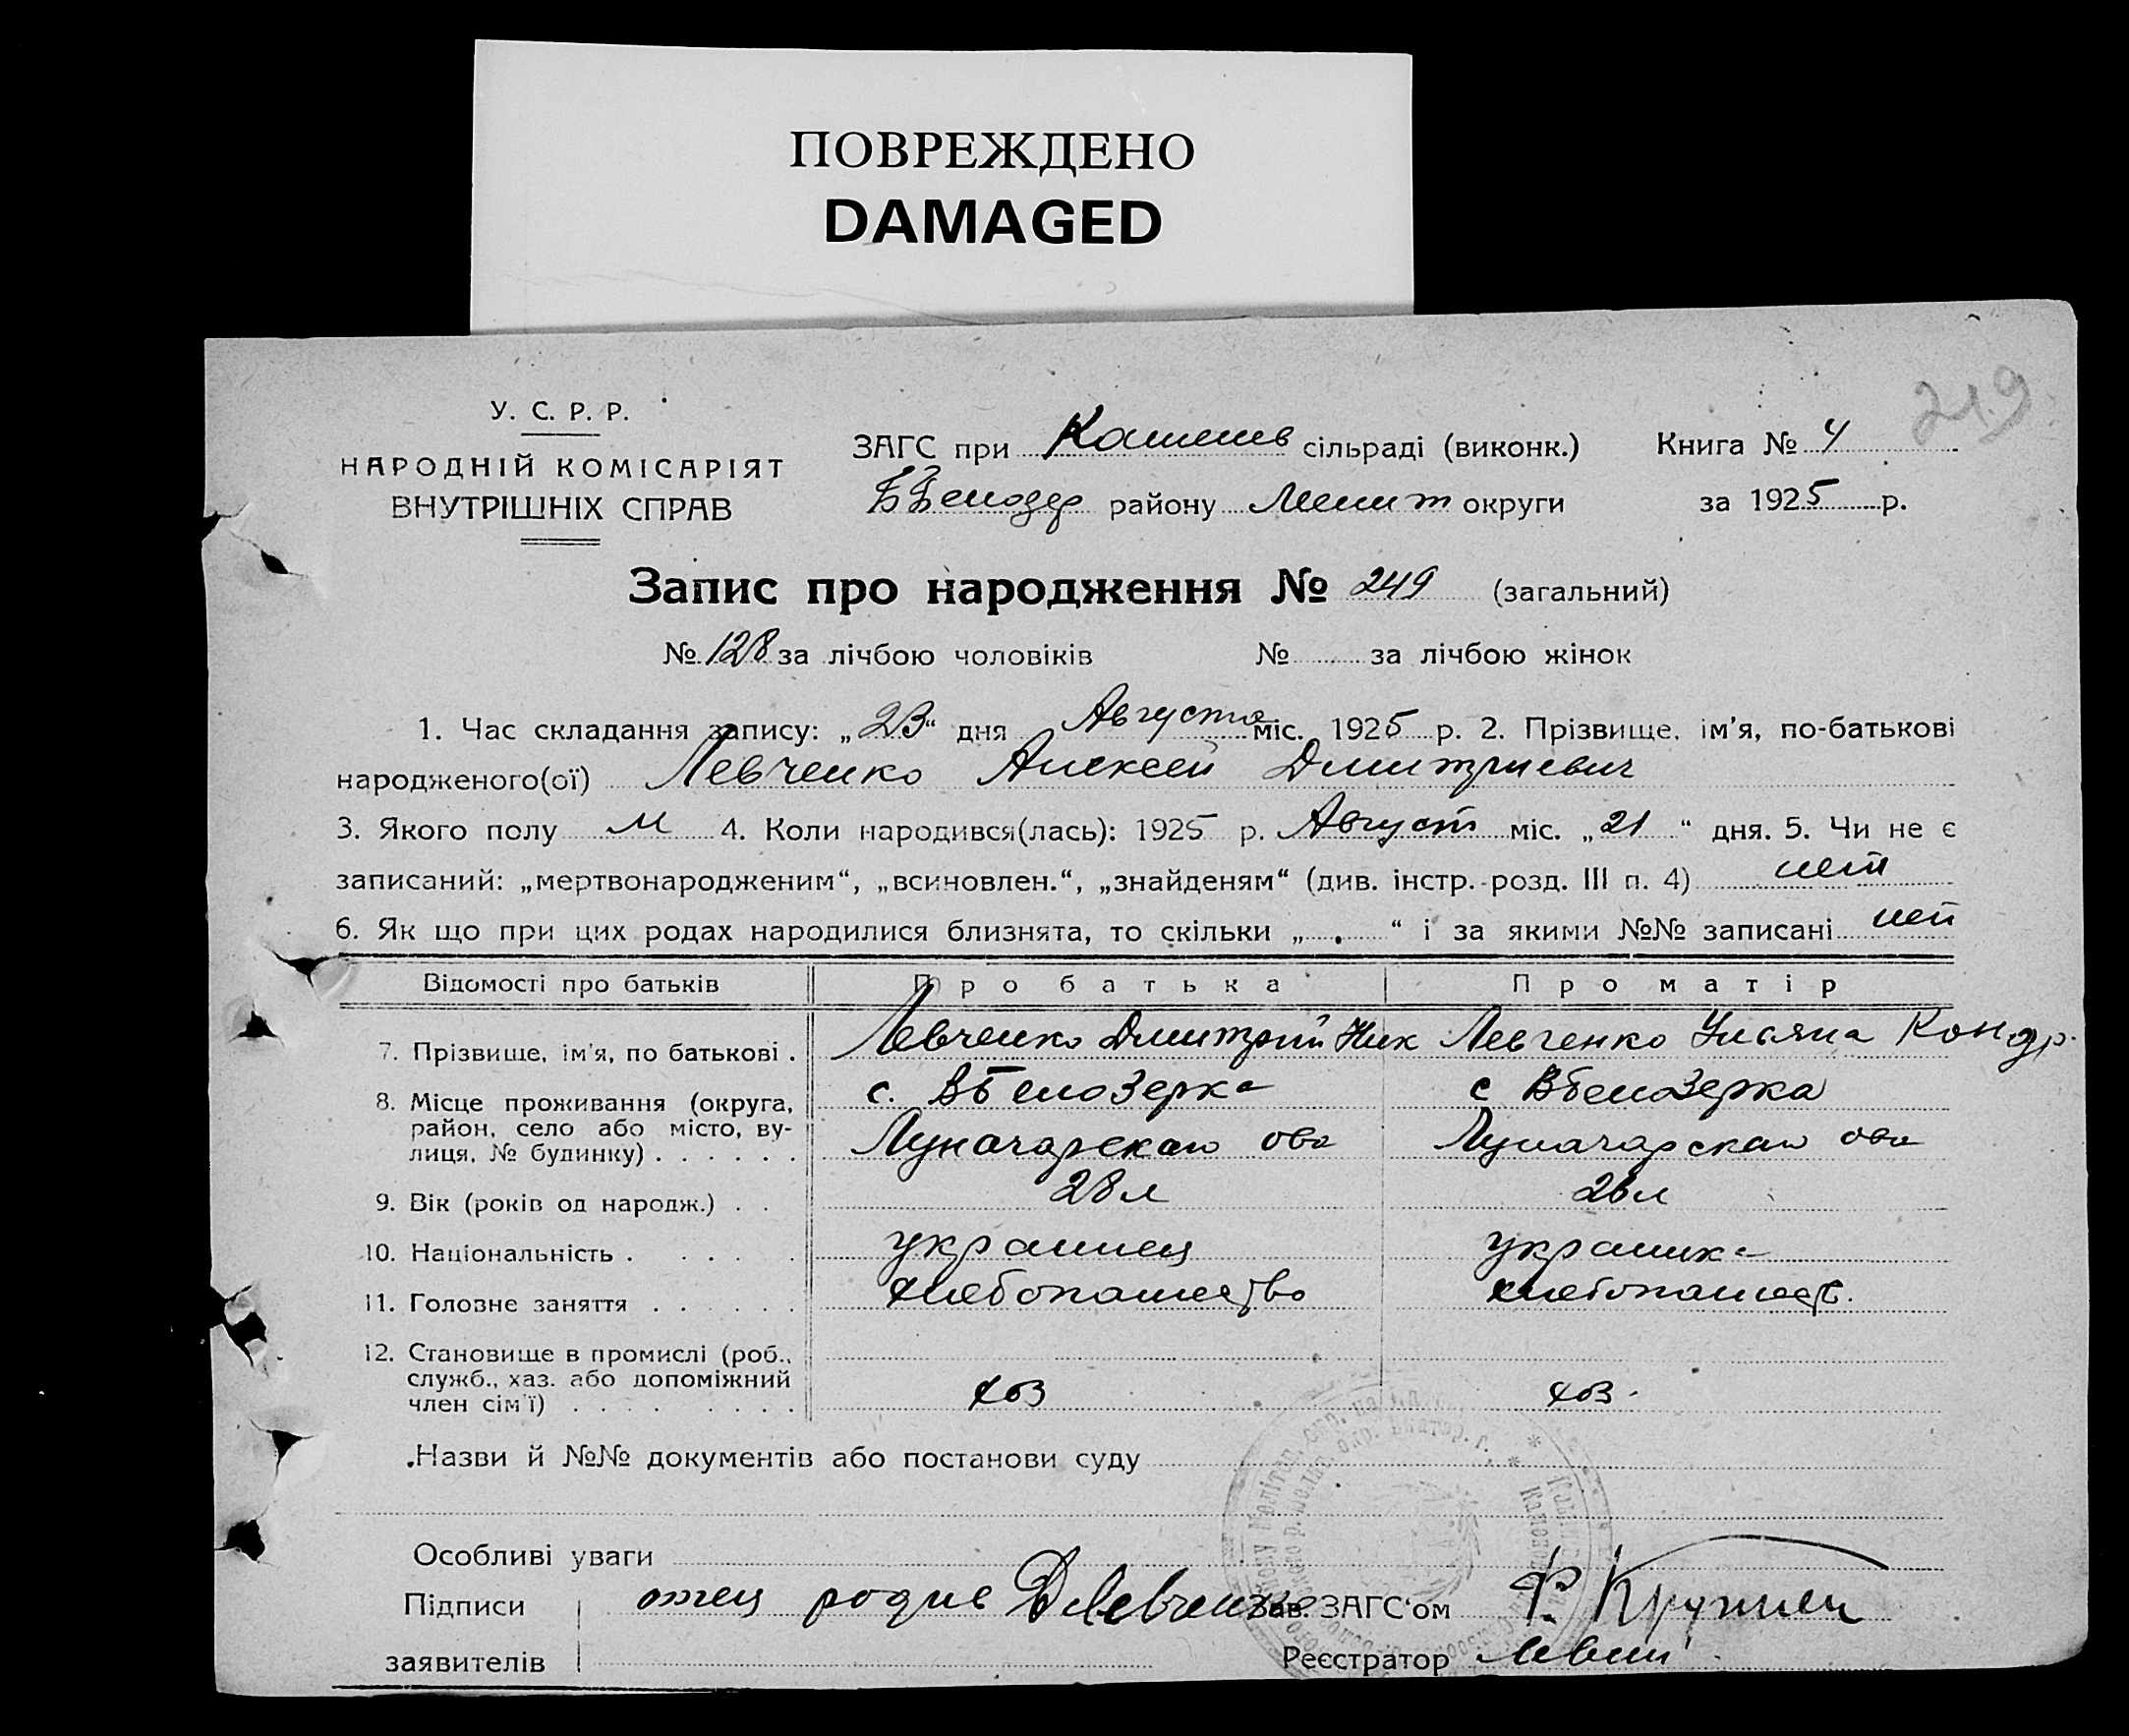 ПОВРЕЖДЕНО
DAMAGED
219
У. С. Р. Р.
НАРОДНІЙ КОМІСАРІЯТ
ВНУТРІШНІХ СПРАВ
ЗАГС при сільраді (виконк.) Книга № 4
району Мелит округи за 1925 р.
Запис про народження № 249 (загальний)
№ 128 за лічбою чоловіків № за лічбою жінок
1. Час складання запису: „23“ дня Августа міс. 1925 р. 2. Прізвище, ім'я, по-батькові
народженого(ої) Левченко Алексей Дмитриевич
3. Якого полу М 4. Коли народився(лась): 1925 р. Август міс. „21“ дня. 5. Чи не є
записаний: „мертвонародженим“, „всиновлен.“, „знайденям“ (див. інстр. розд. III п. 4) нет
6. Як що при цих родах народилися близнята, то скільки „ “ і за якими №№ записані нет
Відомості про батьків Про батька Про матір
7. Прізвище, ім'я, по батькові . Левченко Дмитрий Ник Левченко Ульяна Кондр.
8. Місце проживання (округа, с. ВБелозерка с ВБелозерка
район, село або місто, ву-
лиця, № будинку) . . . . . . Луначарскаю ова Луначарскаю ова
9. Вік (років од народж.) . . 28 л 26 л
10. Національність . . . . . украинец украинка
11. Головне заняття . . . . . . хлебопашество хлебопашеств.
12. Становище в промислі (роб.,
служб., хаз. або допоміжний
член сім'ї) . . . . . . . . хоз хоз.
Назви й №№ документів або постанови суду
Особливі уваги
Підписи отец Д Левченко Зав. ЗАГС'ом
заявителів Реєстратор